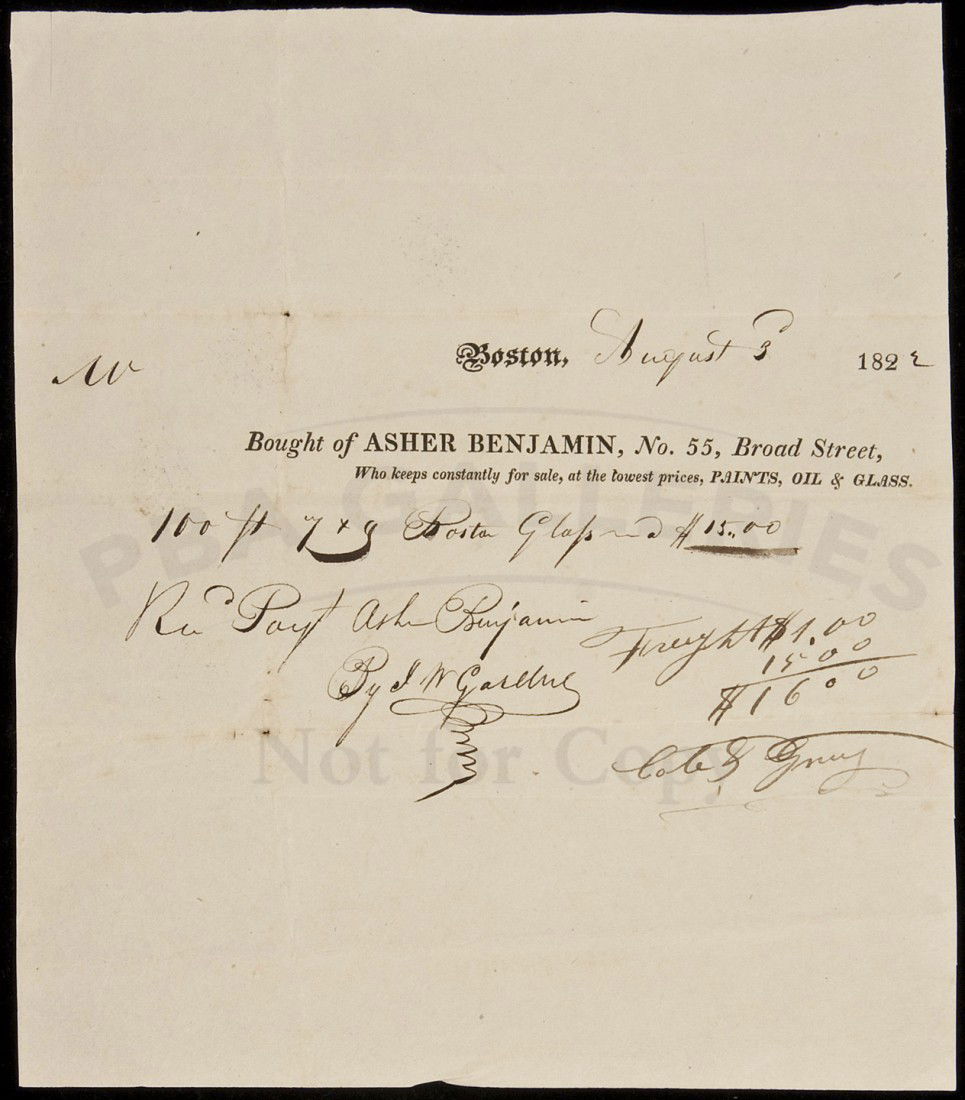 Boston, August 3 1822
Mr
Bought of ASHER BENJAMIN, No. 55, Broad Street,
Who keeps constantly for sale, at the lowest prices, PAINTS, OIL & GLASS.
PBA GALLERIES
100 ft 7 x 9 Boston Glass $15.00
Recd Payt Asher Benjamin
Freight $1.00
15.00
By J W Gardner
$16.00
Not for Copy